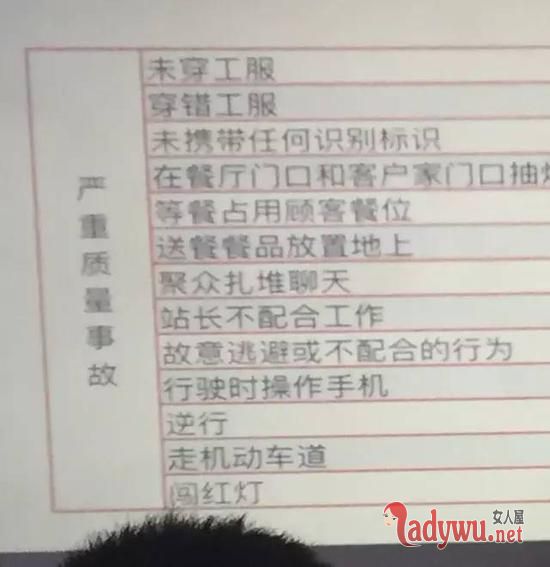 严重质量事故
未穿工服
穿错工服
未携带任何识别标识
在餐厅门口和客户家门口抽
等餐占用顾客餐位
送餐餐品放置地上
聚众扎堆聊天
站长不配合工作
故意逃避或不配合的行为
行驶时操作手机
逆行
走机动车道
闯红灯
女人屋
ladywu.net